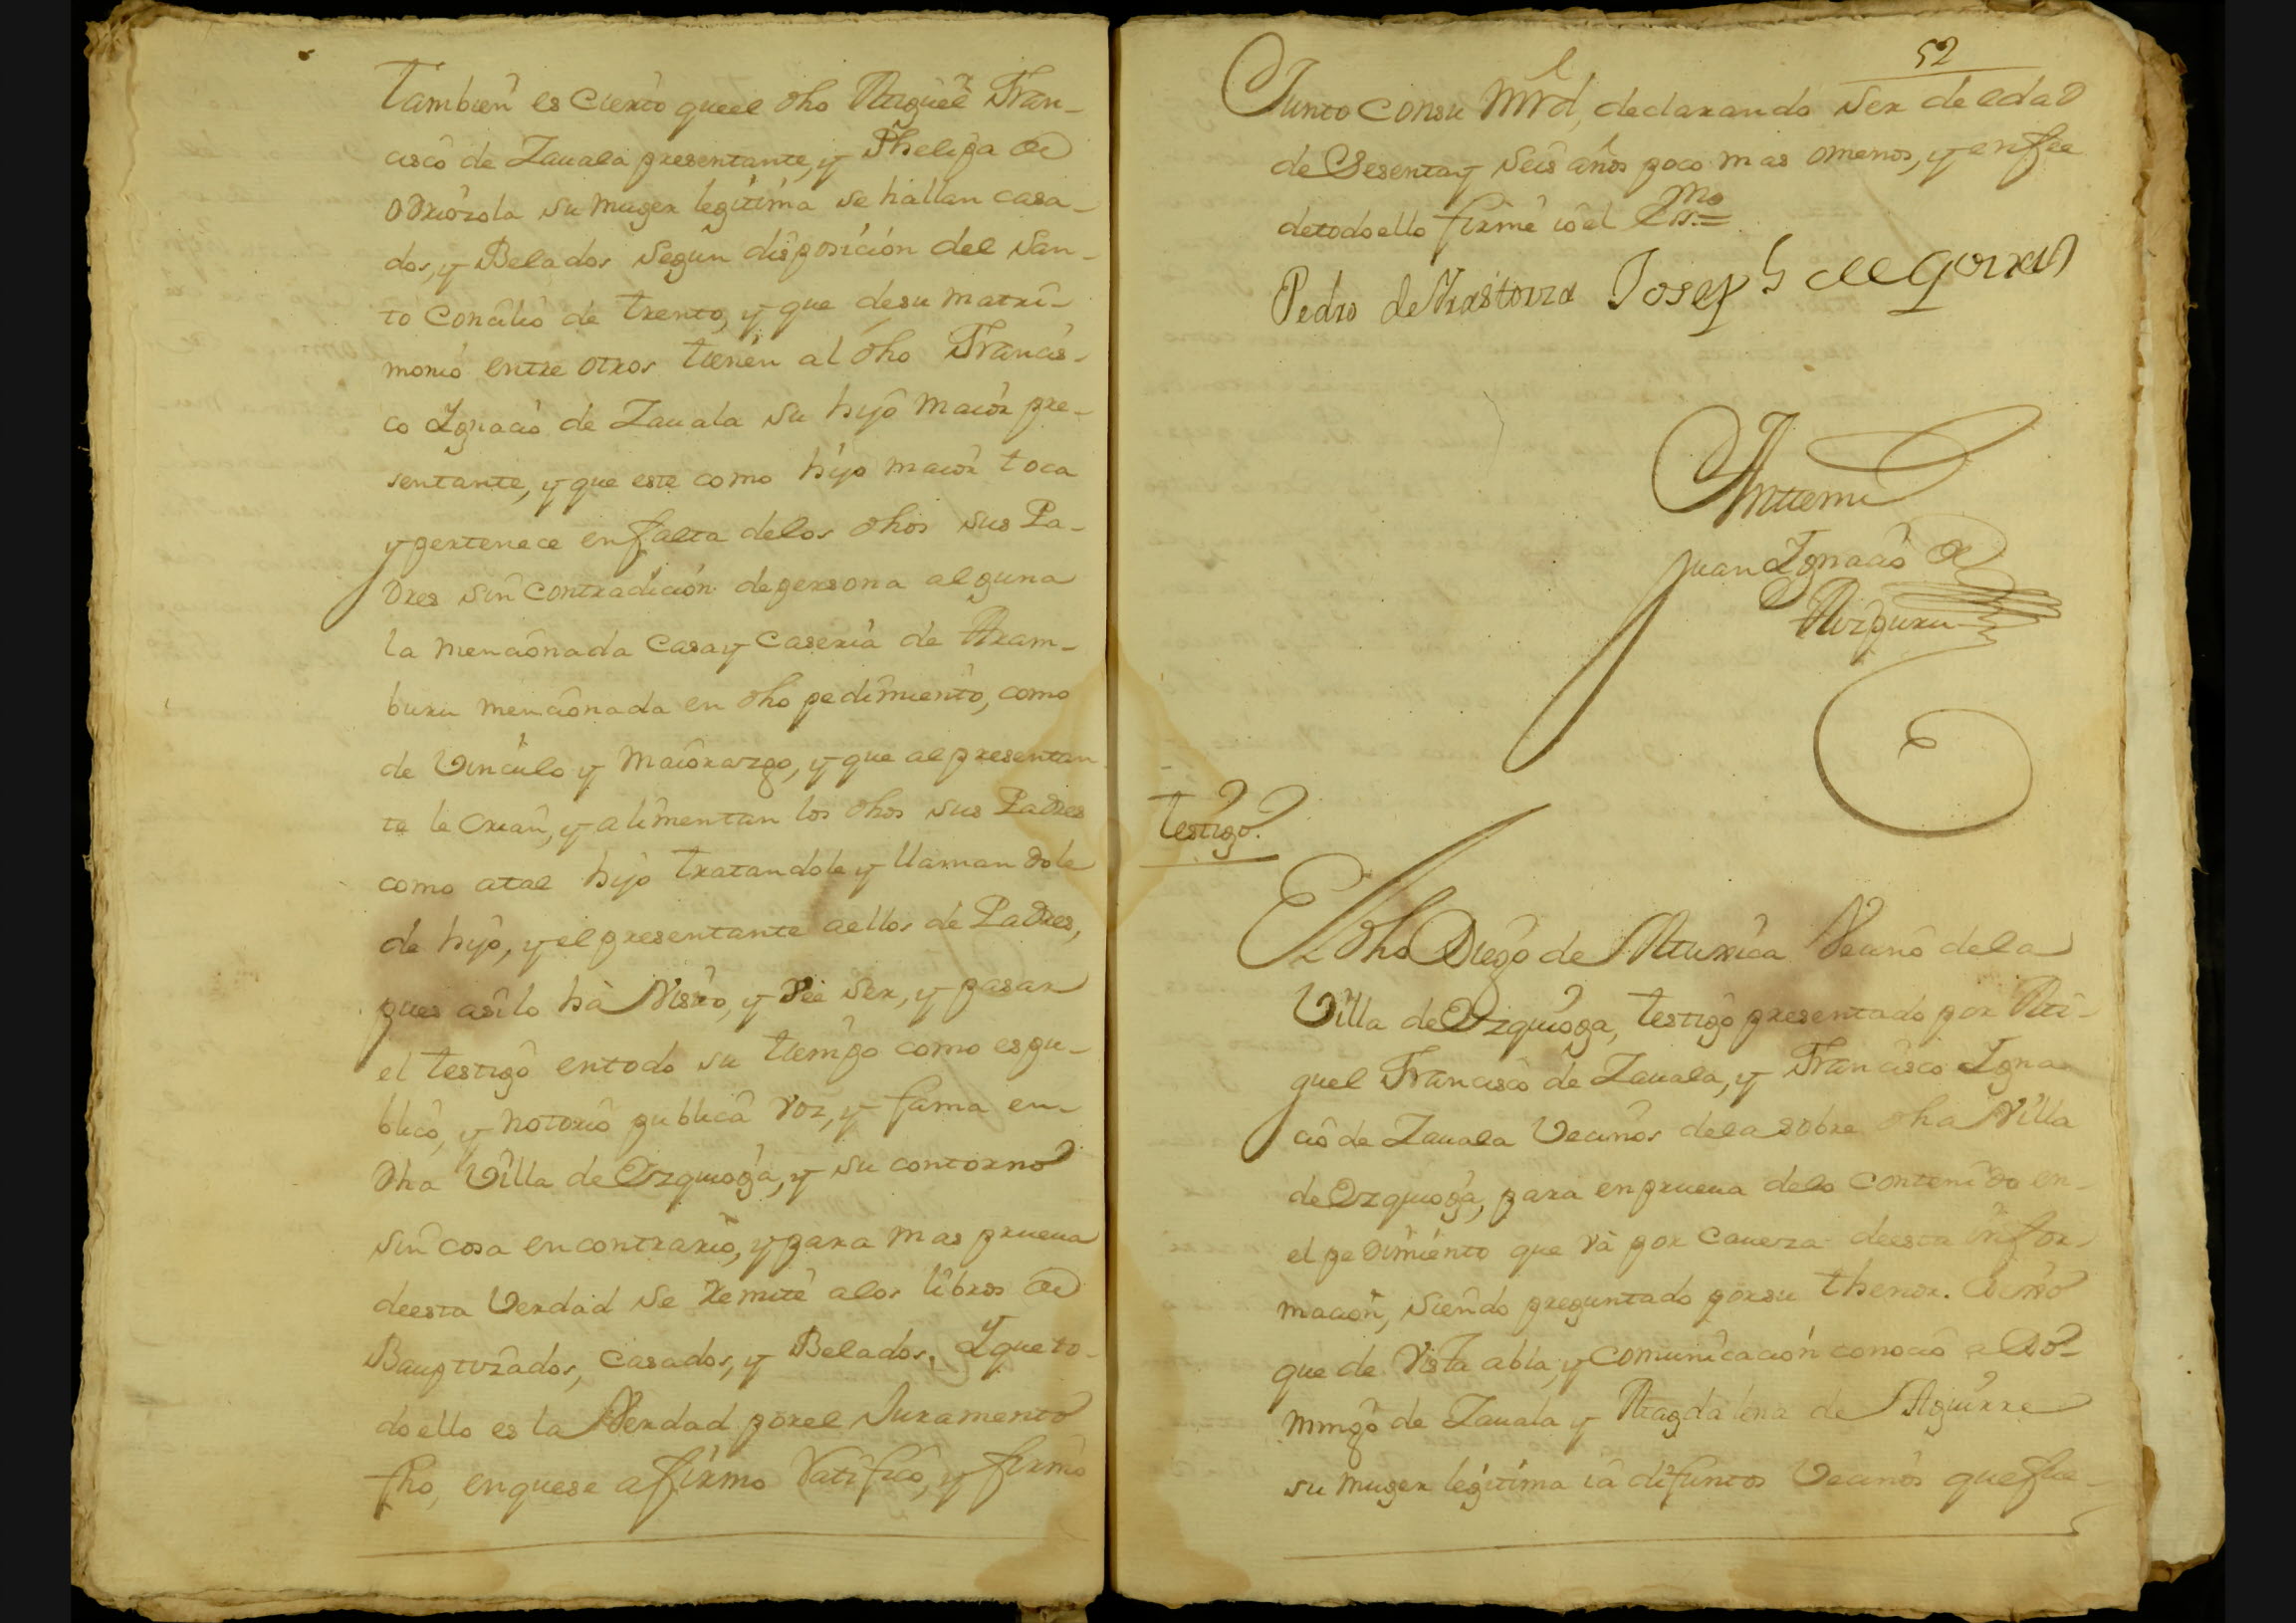 tambien es Cierto queel dho Miguel Fran-
cisco de Zauala presentante, y Phelipa de
Odriozola su muger legitima se hallan casa-
dos, y Belados segun disposicion del San-
to Concilio de trento, y que desu matri-
monio entre otros tienen al dho Francis-
co Ygnacio de Zauala su hijo maior pre-
sentante, y que este como hijo maior toca
y pertenece enfalta delos dhos sus Pa-
dres sin contradicion depersona alguna
la mencionada Casa y Caseria de Aram-
buru mencionada en dho pedimiento, como
de Vinculo y maiorazgo, y que al presentan-
te le Crian, y alimentan los dhos sus Padres
como atal hijo tratandole y llamandole
de hijo, y el presentante aellos de Padres,
pues asilo hà Visto, y Vèe ser, y pasar
el testigo entodo su tiempo como espu-
blico, y notorio publica voz, y fama en-
dha Villa de Ezquioga, y su contorno
sin cosa encontrario, y para mas prueua
deesta Verdad se Remite alos libros de
Bauptizados, Casados, y Belados, Yque to-
doello es la Verdad porel Juramento
fho, enquese afirmo Ratifico, y firmò
52
Junto Consu Mrd, declarando ser deedad
de Sesentay seis años poco mas omenos, y enfee
detodoello firmè ioel Essno=
Pedro de Vrastorza Joseph de Gorxa
Anttemi
Juan Ygnacio de
Aizpuru
testigo.
El dho Diego de Murxica Vecino dela
Villa de Ezquioga, testigo presentado por Mi-
guel Francisco de Zauala, y Francisco Ygna-
cio de Zauala Vecinos dela sobre dha Villa
de Ezquioga, para enprueua delo contenido en-
el pedimiento que và por Caueza deesta infor-
macion, siendo preguntado porsu thenor. Dixo
que de Vista abla, y comunicacion conocio a Do-
mingo de Zauala y Magdalena de Aguirre
su muger legitima ia difuntos Vecinos quefue-